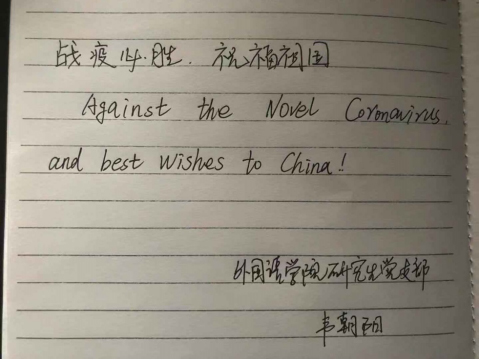 战疫必胜. 祝福祖国
Against the Novel Coronavirus.
and best wishes to China!
外国语学院研究生党支部
韦朝阳